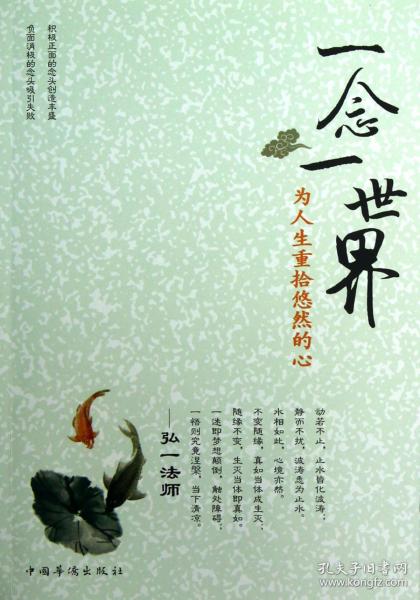 一念一世界
为人生重拾悠然的心
积极正面的念头创造丰盛
负面消极的念头吸引失败
动若不止，止水皆化波涛；
静而不扰，波涛悉为止水。
水相如此，心境亦然。
不变随缘，真如当体成生灭；
随缘不变，生灭当体即真如。
一迷即梦想颠倒，触处障碍；
一悟则究竟涅槃，当下清凉。
——弘一法师
中国华侨出版社
孔夫子旧书网
www.kongfz.com